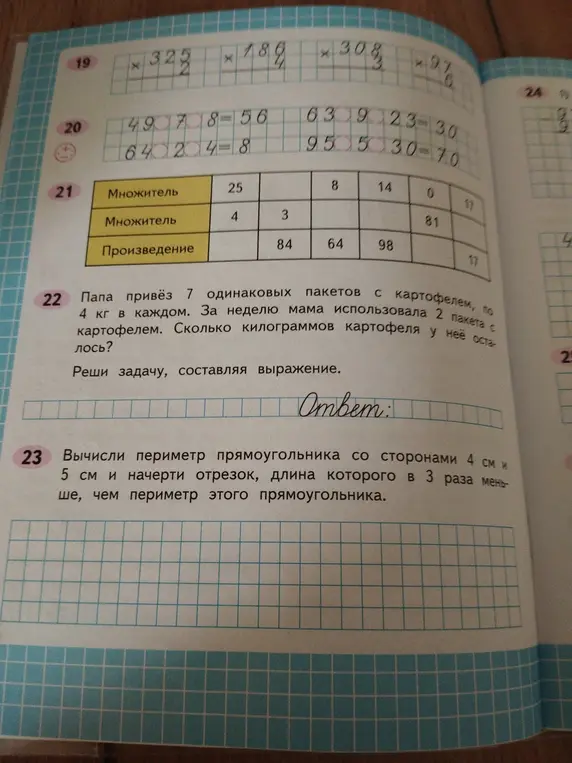 19 × 325 × 186 × 308 × 97
2 4 3 6
20 49 7 8 = 56 63 9 23 = 30
64 2 4 = 8 95 5 30 = 70
21 Множитель 25 8 14 0 17
Множитель 4 3 81
Произведение 84 64 98 17
22 Папа привёз 7 одинаковых пакетов с картофелем, по
4 кг в каждом. За неделю мама использовала 2 пакета с
картофелем. Сколько килограммов картофеля у неё оста-
лось?
Реши задачу, составляя выражение.
Ответ:
23 Вычисли периметр прямоугольника со сторонами 4 см и
5 см и начерти отрезок, длина которого в 3 раза мень-
ше, чем периметр этого прямоугольника.
24